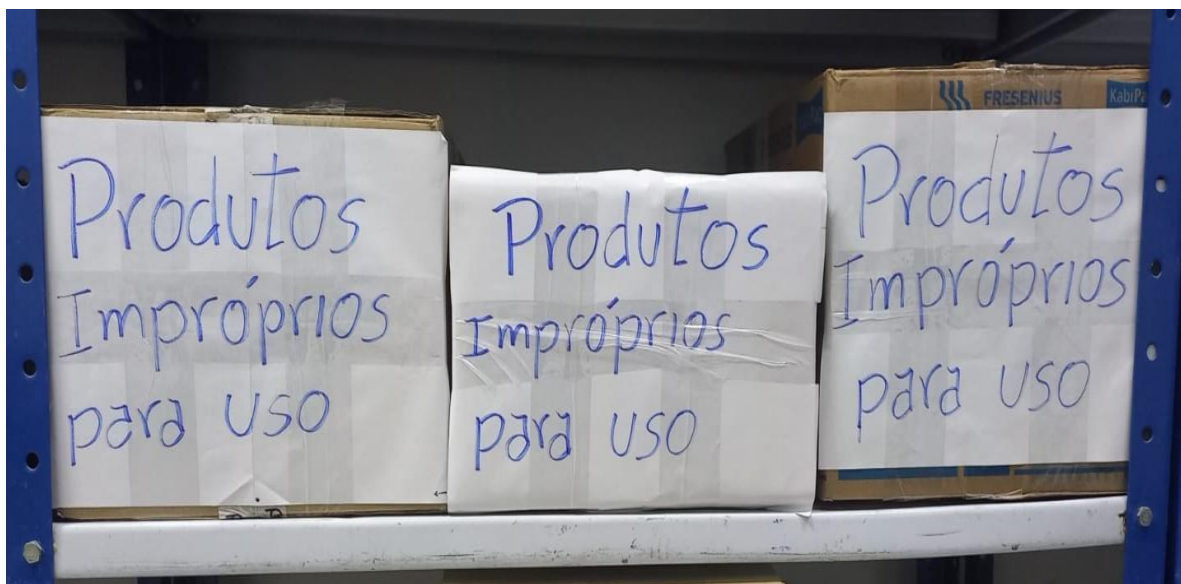 Produtos
Impróprios
para uso
Produtos
Impróprios
para uso
FRESENIUS
Produtos
Impróprios
para uso